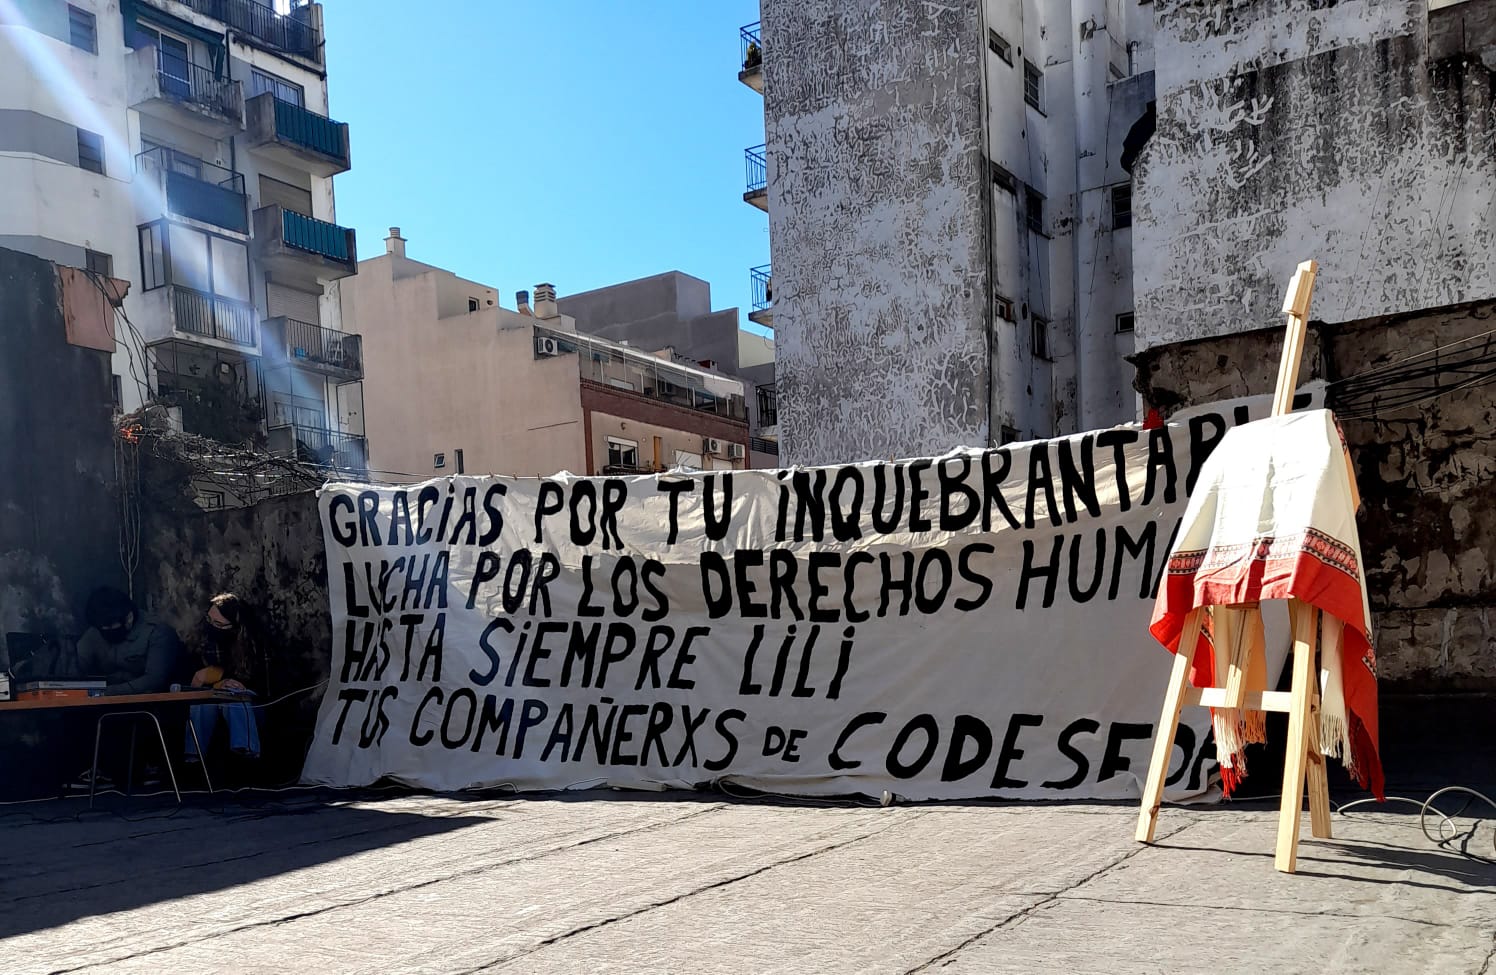 GRACiAS POR TU iNQUEBRANTABLE
LUCHA POR LOS DERECHOS HUMA
HASTA SiEMPRE LiLi
TUS COMPAÑERXS DE CODESEDH